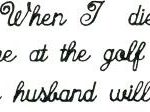 When I die
at the golf
husband will